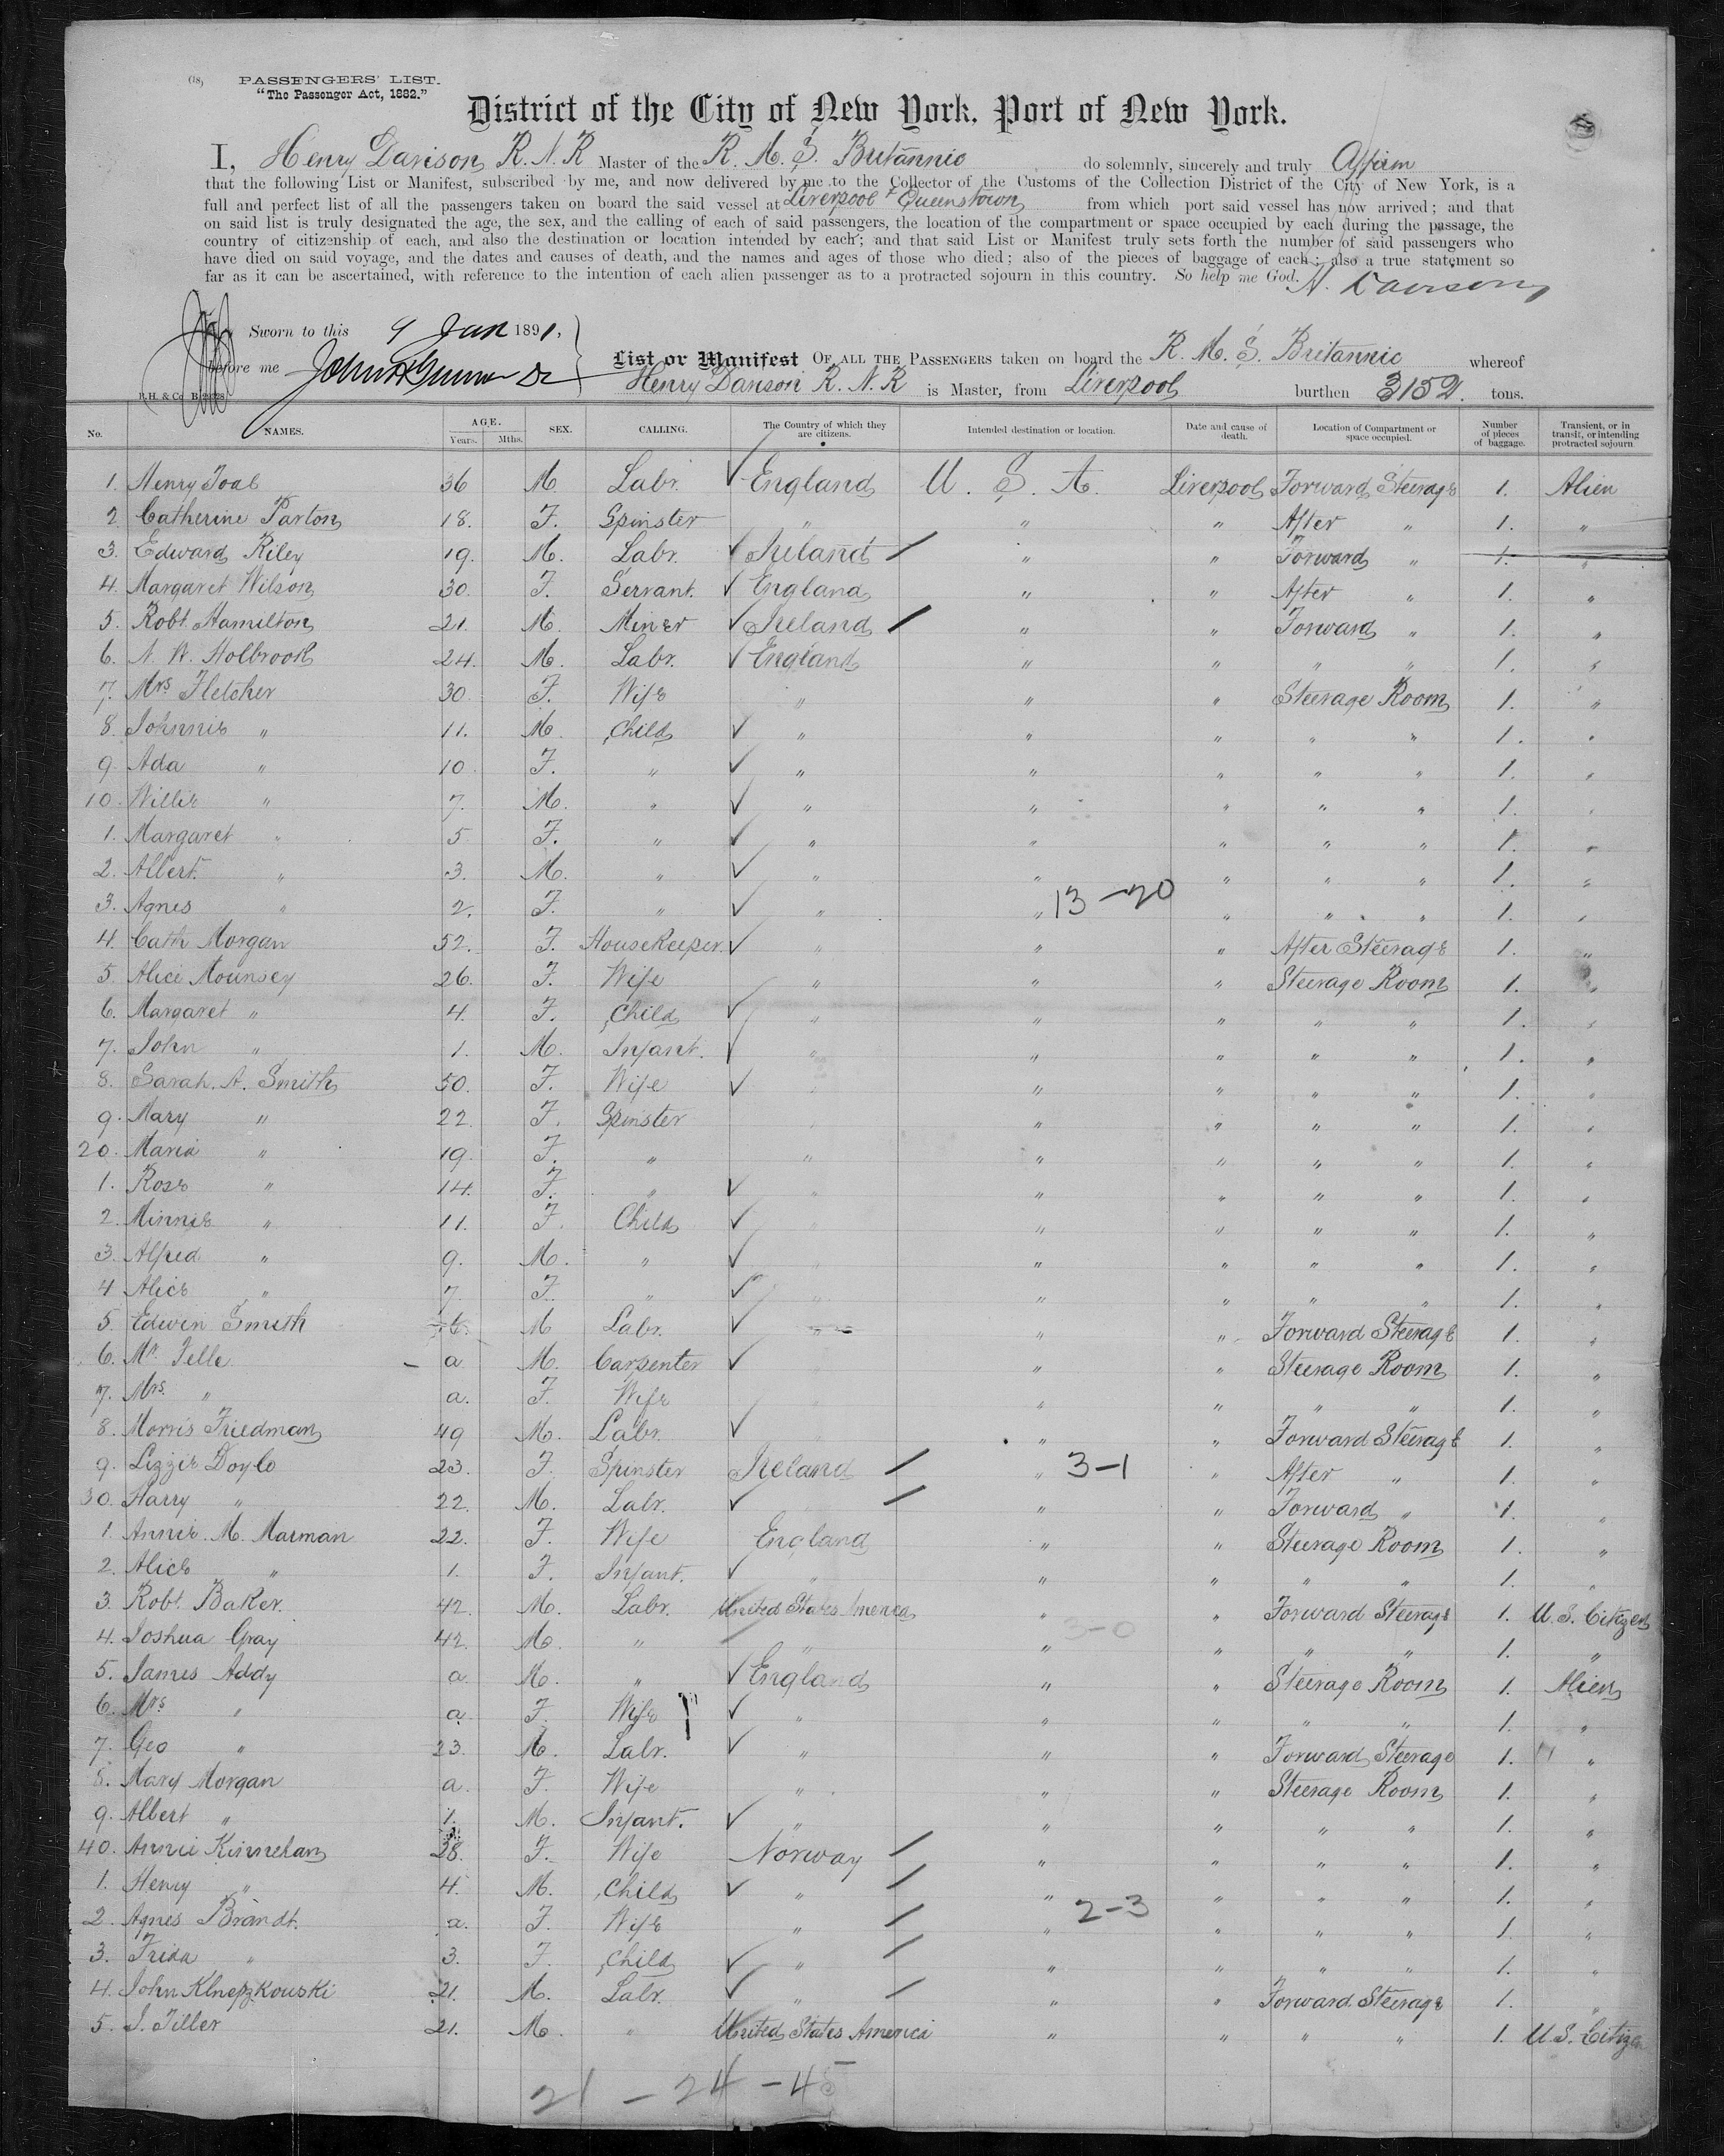 (18)
PASSENGERS' LIST.
"The Passenger Act, 1882."
District of the City of New York, Port of New York.
I, Henry Davison R.N.R Master of the R. M. S. Britannic do solemnly, sincerely and truly Affirm
that the following List or Manifest, subscribed by me, and now delivered by me to the Collector of the Customs of the Collection District of the City of New York, is a
full and perfect list of all the passengers taken on board the said vessel at Liverpool & Queenstown from which port said vessel has now arrived; and that
on said list is truly designated the age, the sex, and the calling of each of said passengers, the location of the compartment or space occupied by each during the passage, the
country of citizenship of each, and also the destination or location intended by each; and that said List or Manifest truly sets forth the number of said passengers who
have died on said voyage, and the dates and causes of death, and the names and ages of those who died; also of the pieces of baggage of each; also a true statement so
far as it can be ascertained, with reference to the intention of each alien passenger as to a protracted sojourn in this country. So help me God. H. Davison
Sworn to this 9 Jan 1891,
before me John
List or Manifest OF ALL THE PASSENGERS taken on board the R. M. S. Britannic whereof
Henry Davison R. N. R is Master, from Liverpool burthen 3152. tons.
No. NAMES. AGE. Years. Mths. SEX. CALLING. The Country of which they are citizens. Intended destination or location. Date and cause of death. Location of Compartment or space occupied. Number of pieces of baggage. Transient, or in transit, or intending protracted sojourn
1. Henry Toal 36 M Labr. England U. S. A. Liverpool Forward Steerage 1. Alien
2 Catherine Parton 18. F. Spinster " " " After " 1. "
3. Edward Riley 19. M. Labr. Ireland " " Forward " 1. "
4. Margaret Wilson 30. F. Servant. England " " After " 1. "
5. Robt. Hamilton 21. M. Miner Ireland " " Forward " 1. "
6. N. W. Holbrook 24. M. Labr. England " " " " 1. "
7. Mrs Fletcher 30 F. Wife " " " Steerage Room 1. "
8. Johnnie " 11. M. Child " " " " " 1. "
9. Ada " 10. F. " " " " " " 1. "
10. Willie " 7. M. " " " " " " 1. "
1. Margaret " 5 F. " " " " " " 1. "
2. Albert. " 3. M. " " " " " " 1. "
3. Agnes " 2. F. " " " 13-20 " " " 1. "
4. Cath Morgan 52. F. Housekeeper. " " " After Steerage 1. "
5 Alice Mounsey 26. F. Wife " " " Steerage Room 1. "
6. Margaret " 4. F. Child " " " " " 1. "
7. John " 1. M. Infant. " " " " " 1. "
8. Sarah. A. Smith 50. F. Wife " " " " " 1. "
9. Mary " 22. F. Spinster " " " " 1. "
20. Maria " 19. F. " " " " " " 1. "
1. Rose " 14. F. " " " " " " 1. "
2. Minnie " 11. F. Child " " " " " 1. "
3. Alfred " 9. M. " " " " " " 1. "
4 Alice " 7. F. " " " " " " 1. "
5. Edwin Smith M Labr. " " " Forward Steerage 1. "
6. Mr. Felle a M. Carpenter " " Steerage Room 1. "
7. Mrs. " a. F. Wife " " " " 1. "
8. Morris Friedman 49 M. Labr. " " Forward Steerage 1. "
9. Lizzie Doyle 23. F. Spinster Ireland " 3-1 " After " 1. "
30. Harry " 22. M. Labr. " " Forward " 1. "
1. Annie. M. Marman 22. F. Wife England " " Steerage Room 1. "
2. Alice " 1. F. Infant. " " " " " 1. "
3. Robt. Baker. 42. M. Labr. United States America " " Forward Steerage 1. U.S. Citizen
4. Joshua Gray 42. M. " " " 3-0 " " " 1. "
5. James Addy a. M. " England " " Steerage Room 1. Alien
6. Mrs " a. F. Wife " " " " " 1. "
7. Geo " 23. M. Labr. " " " Forward Steerage 1. "
8. Mary Morgan a. F. Wife " " " Steerage Room 1. "
9. Albert " 1. M. Infant. " " " " " 1. "
40. Annie Kinnehan 28. F. Wife Norway " " " " 1. "
1. Henry " 4. M. Child " " " " " 1. "
2. Agnes Brandt. a. F. Wife " " 2-3 " " " 1. "
3. Frida " 3. F. Child " " " " " 1. "
4. John 21. M. Labr. " " " Forward Steerage 1. "
5. J. Tiller 21. M. " United States America " " " " 1. U.S. Citizen
21 - 24 - 45